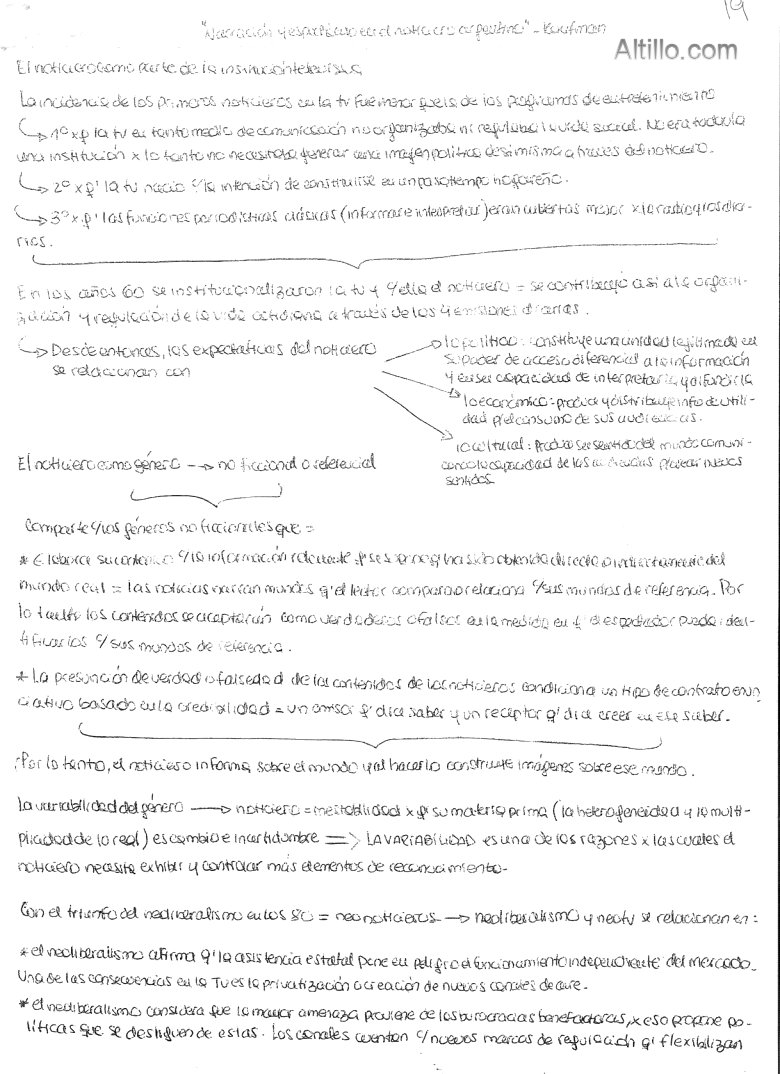 19
"Narración y espectáculo en el noticiero argentino" - Kaufman
Altillo.com
El noticiero como parte de la institución televisiva
La incidencia de los primeros noticieros en la tv fue menor que la de los programas de entretenimiento
1º x q' la tv en tanto medio de comunicación no organizaba ni regulaba la vida social. No era todavía
una institución x lo tanto no necesitaba generar una imagen política de si misma a través del noticiero.
2º x q' la tv nació c/la intención de constituirse en un pasatiempo hogareño.
3º x q' las funciones periodísticas clásicas (informar e interpretar) eran cubiertas mejor x la radio y los dia-
rios.
En los años 60 se institucionalizaron la tv y c/ella el noticiero = se contribuyó así a la organi-
zación y regulación de la vida cotidiana a través de las 4 emisiones diarias.
Desde entonces, las expectativas del noticiero
se relacionan con
lo político: constituye una unidad legitimada en
su poder de acceso diferencial a la información
y en su capacidad de interpretarla y difundirla
lo económico: produce y distribuye info de utili-
dad p/el consumo de sus audiencias.
lo cultural: produce sentido del mundo comuni-
cando la capacidad de las audiencias nuevos
sentidos
El noticiero como género → no ficcional o referencial
Comparte c/los géneros no ficcionales que =
* Elabora su contenido c/la información relevante q' se supone q' ha sido obtenida directa o indirectamente del
mundo real = las noticias narran mundos q' el lector compara o relaciona c/sus mundos de referencia. Por
lo tanto los contenidos se aceptarán como verdaderos o falsos en la medida en q' el espectador pueda iden-
tificarlos c/sus mundos de referencia.
* La presunción de verdad o falsedad de los contenidos de los noticieros condiciona un tipo de contrato enun-
ciativo basado en la credibilidad = un emisor q' dice saber y un receptor q' dice creer en ese saber.
Por lo tanto, el noticiero informa sobre el mundo y al hacerlo construye imágenes sobre ese mundo.
La variabilidad del género → noticiero = inestabilidad x q' su materia prima (la heterogeneidad y la multi-
plicidad de lo real) es cambio e incertidumbre ⇒ LA VARIABILIDAD es una de las razones x las cuales el
noticiero necesita exhibir y controlar más elementos de reconocimiento.
Con el triunfo del neoliberalismo en los 80 = neonoticieros → neoliberalismo y neotv se relacionan en:
* el neoliberalismo afirma q' la asistencia estatal pone en peligro el funcionamiento independiente del mercado.
Una de las consecuencias en la TV es la privatización o creación de nuevos canales de aire.
* el neoliberalismo considera que la mayor amenaza proviene de las burocracias benefactoras, x eso propone po-
líticas que se desliguen de estas. Los canales cuentan c/nuevos marcos de regulación q' flexibilizan